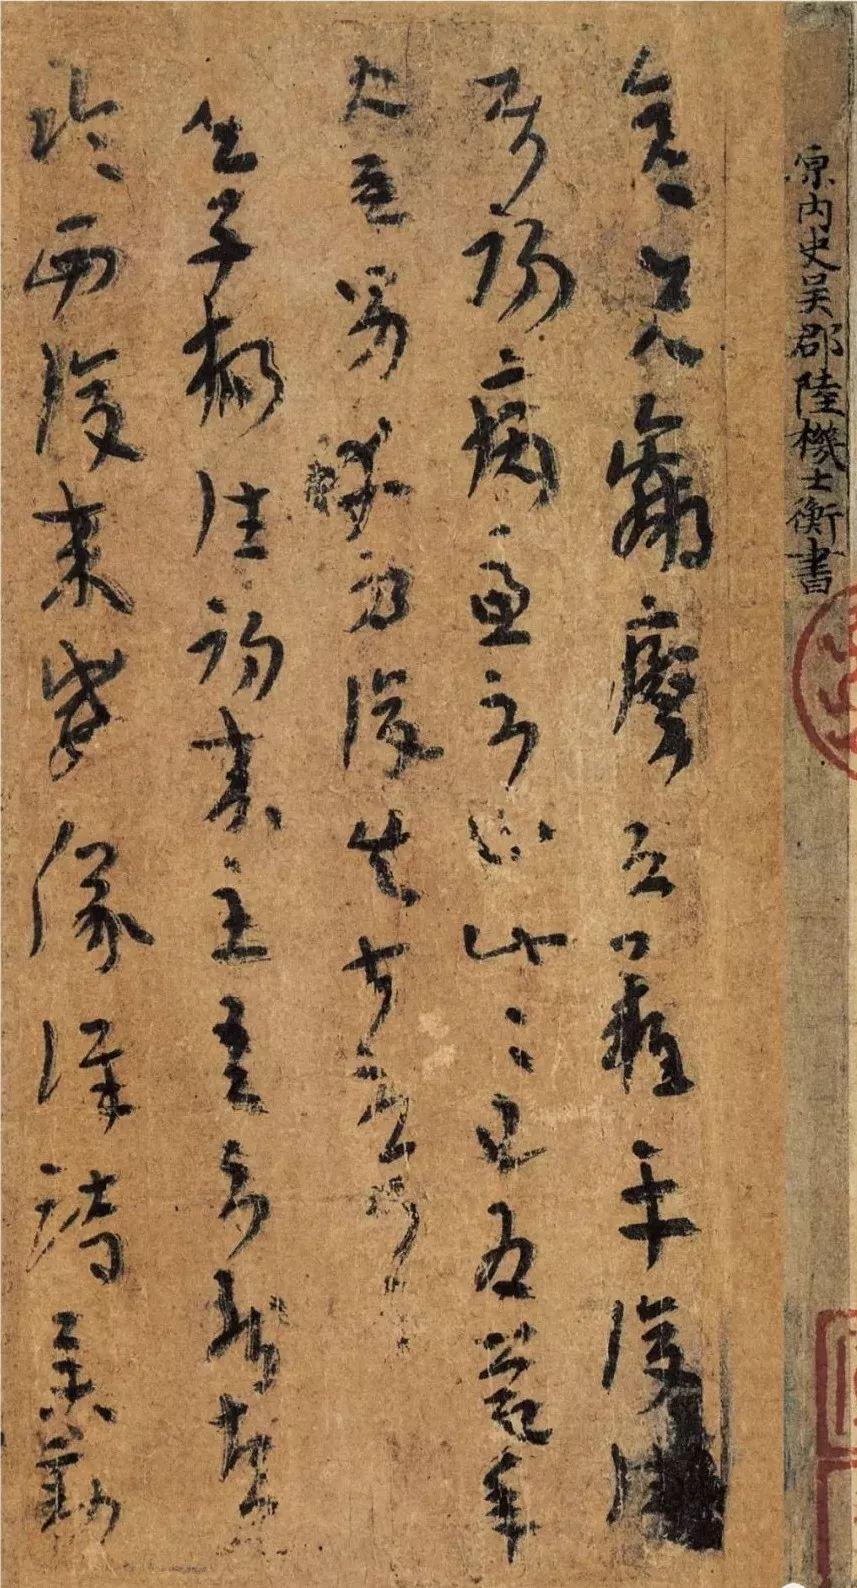 原内史吳郡陸機士衡書
彦先羸瘵恐難平復
屬初病慮不止此〻已為慶承
使唯男幸為復失前憂耳
吳子楊往初來主吾不能盡
臨西復來威儀詳跱舉動